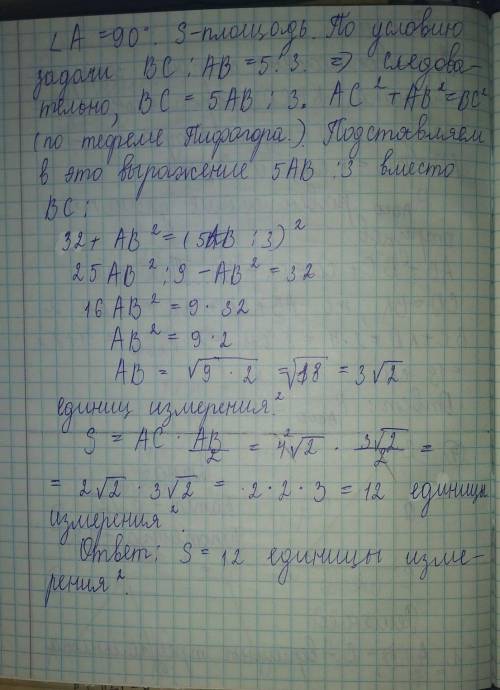 ∠A = 90°. S-площадь. По условию
задачи BC : AB = 5 : 3. => следова-
тельно, BC = 5AB : 3. AC² + AB² = BC²
(по теореме Пифагора.). Подставляем
в это выражение 5AB : 3 вместо
BC:
32 + AB² = (5AB : 3)²
25AB² : 9 - AB² = 32
16AB² = 9 · 32
AB² = 9 · 2
AB = √(9 · 2) = √18 = 3√2
единиц измерения.²
S = AC · AB/2 = 4√2 · 3√2/2 =
= 2√2 · 3√2 = · 2 · 2 · 3 = 12 единицы
измерения².
Ответ: S = 12 единицы изме-
рения².